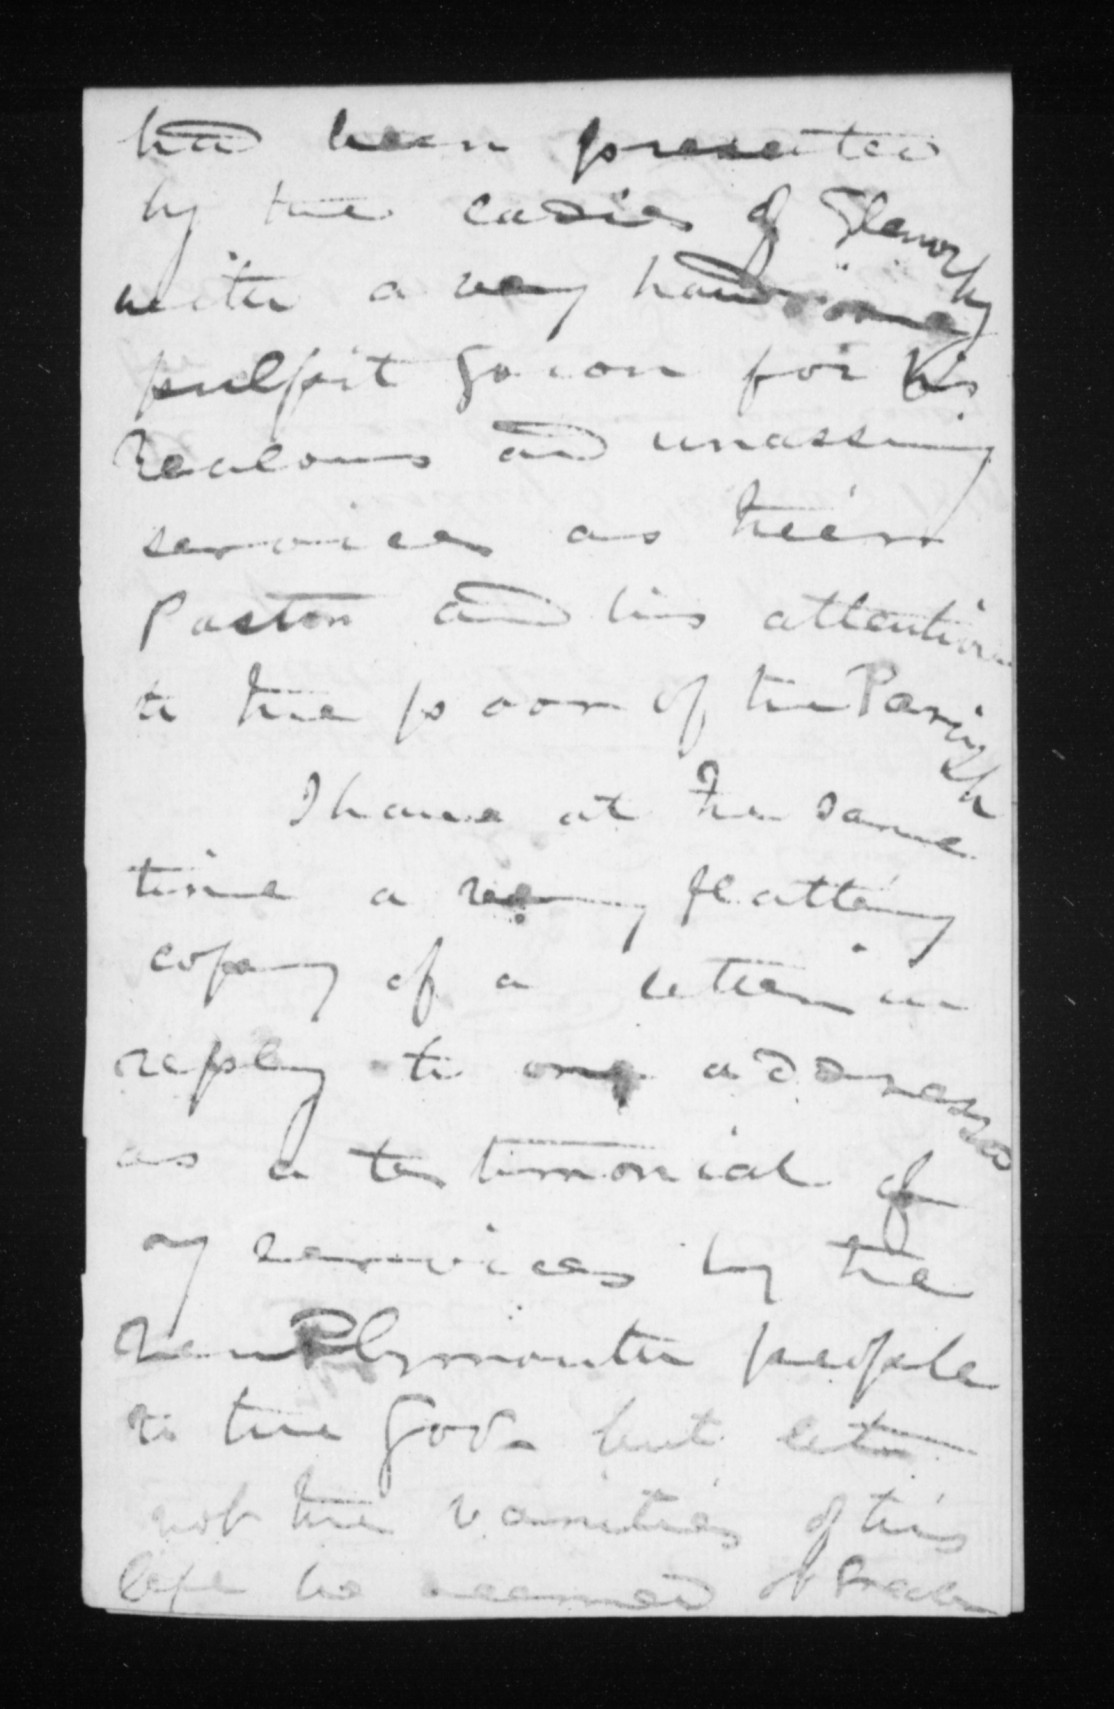 had been presented
by the ladies of Glenorchy
with a very handsome
pulpit gown for his
zealous and unassuming
services as their
Pastor and his attention
to the poor of the Parish
I have at the same
time a very flattering
copy of a letter in
reply to one addressed
as a testimonial of
my services by the
New Plymouth people
to the Gov. but let
not the vanities of this
life be